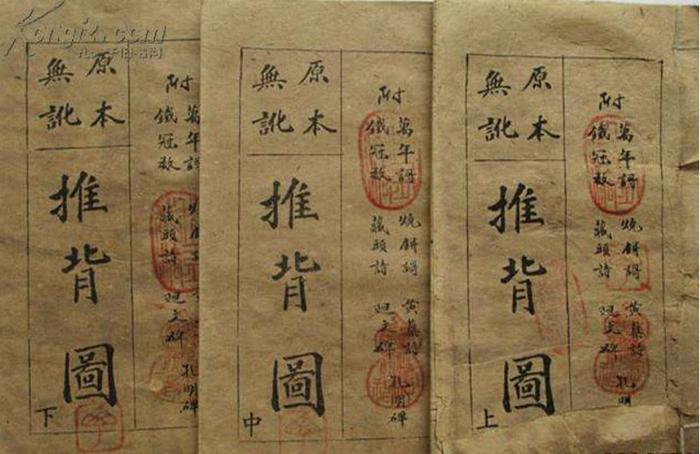 Kongfz.com
原本
無訛
推背圖
上
附
萬年謌 燒餅謌 黃蘗詩 孔明
鐵冠數 藏頭詩 廻文碑
原本
無訛
推背圖
中
附
萬年謌 燒餅謌 黃蘗詩 孔明碑
鐵冠數 藏頭詩 廻文碑
原本
無訛
推背圖
下
附
萬年謌 燒餅 孔明碑
鐵冠數 藏頭詩 廻文碑